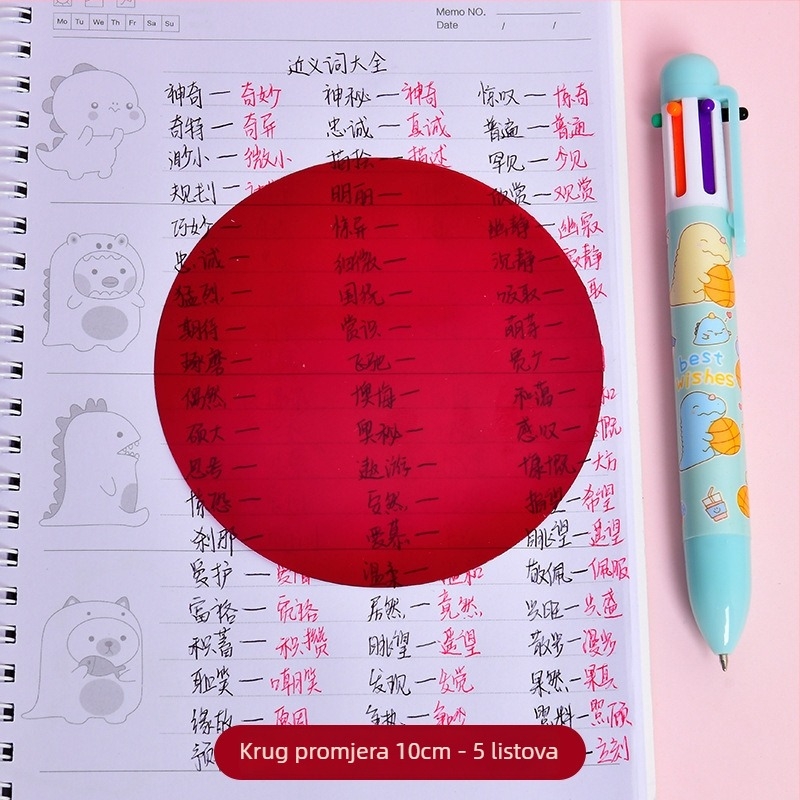 Memo NO.
Date / /
Mo Tu We Th Fr Sa Su
近义词大全
神奇—奇妙 神秘—神奇 惊叹—惊奇
奇特—奇异 忠诚—真诚 普遍—普通
渺小—微小 描绘—描述 罕见—少见
规划— 明丽— 欣赏—观赏
巧妙— 惊异— 幽静—幽寂
忠诚— 细微— 沉静—寂静
猛烈— 国税— 吸取—取
期待— 赏识— 萌芽—
琢磨— 飞驰— 宽广—
偶然— 懊悔— 和蔼—和
硕大— 奥秘— 感叹—慨
思考— 遨游— 慷慨—大方
惊恐— 盼望—希望
刹那— 爱慕— 眺望—遥望
爱护— 温柔— 敬佩—佩服
富裕— 居然—竟然 兴旺—兴盛
积蓄—积攒 眺望—遥望 散步—漫步
耻笑—嘲笑 发现—发觉 果然—果真
缘故—原因 照料—照顾
预 —立刻
best
wishes
Krug promjera 10cm - 5 listova